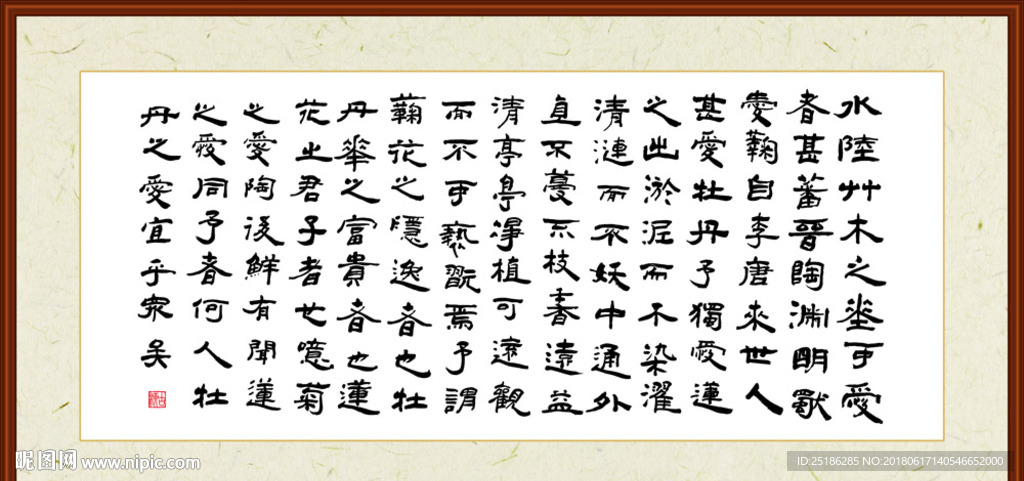 水陸艸木之華可愛
者甚蕃晉陶淵明獨
愛蘜自李唐來世人
甚愛牡丹予獨愛蓮
之出淤泥而不染濯
清漣而不妖中通外
直不蔓不枝香遠益
清亭亭淨植可遠觀
而不可褻翫焉予謂
蘜花之隱逸者也牡
丹華之富貴者也蓮
花之君子者也噫菊
之愛陶後鮮有聞蓮
之愛同予者何人牡
丹之愛宜乎眾矣
昵图网 www.nipic.com
ID:25186285 NO:20180617140546652000